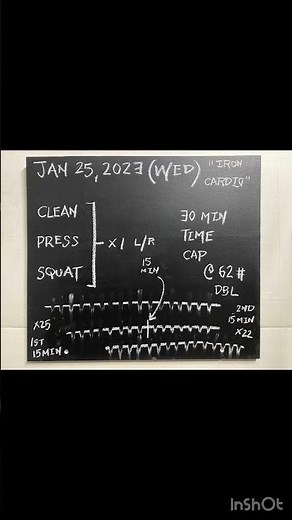 JAN 25, 2023 (WED) "IRON
CARDIO"
CLEAN
PRESS
SQUAT
X1 L/R
30 MIN
TIME
CAP
@ 62#
DBL
15
MIN
X25
1ST
15 MIN
2ND
15 MIN
X22
InShOt